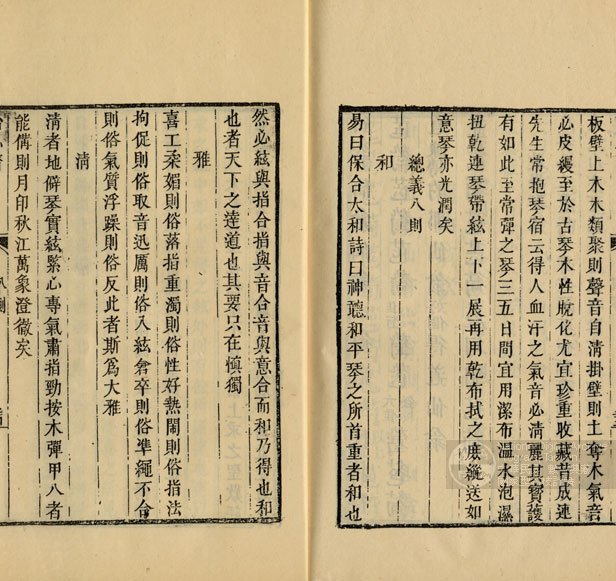 板壁上木木類聚則聲音自清掛壁則土奪木氣音
必皮緩至於古琴木性脫化尤宜珍重收藏昔成連
先生常抱琴宿云得人血汗之氣音必清麗其寶護
有如此至常彈之琴三五日間宜用潔布溫水泡濕
扭乾連琴帶絃上下一展再用乾布拭之底縫送如
意琴亦光潤矣
總義八則
和
易曰保合太和詩曰神聽和平琴之所首重者和也
然必絃與指合指與音合音與意合而和乃得也和
也者天下之達道也其要只在慎獨
雅
喜工柔媚則俗落指重濁則俗性好熱鬧則俗指法
拘促則俗取音迅厲則俗入絃倉卒則俗準繩不合
則俗氣質浮躁則俗反此者斯爲大雅
清
清者地僻琴實絃緊心專氣肅指勁按木彈甲八者
能備則月印秋江萬象澄徹矣
八則